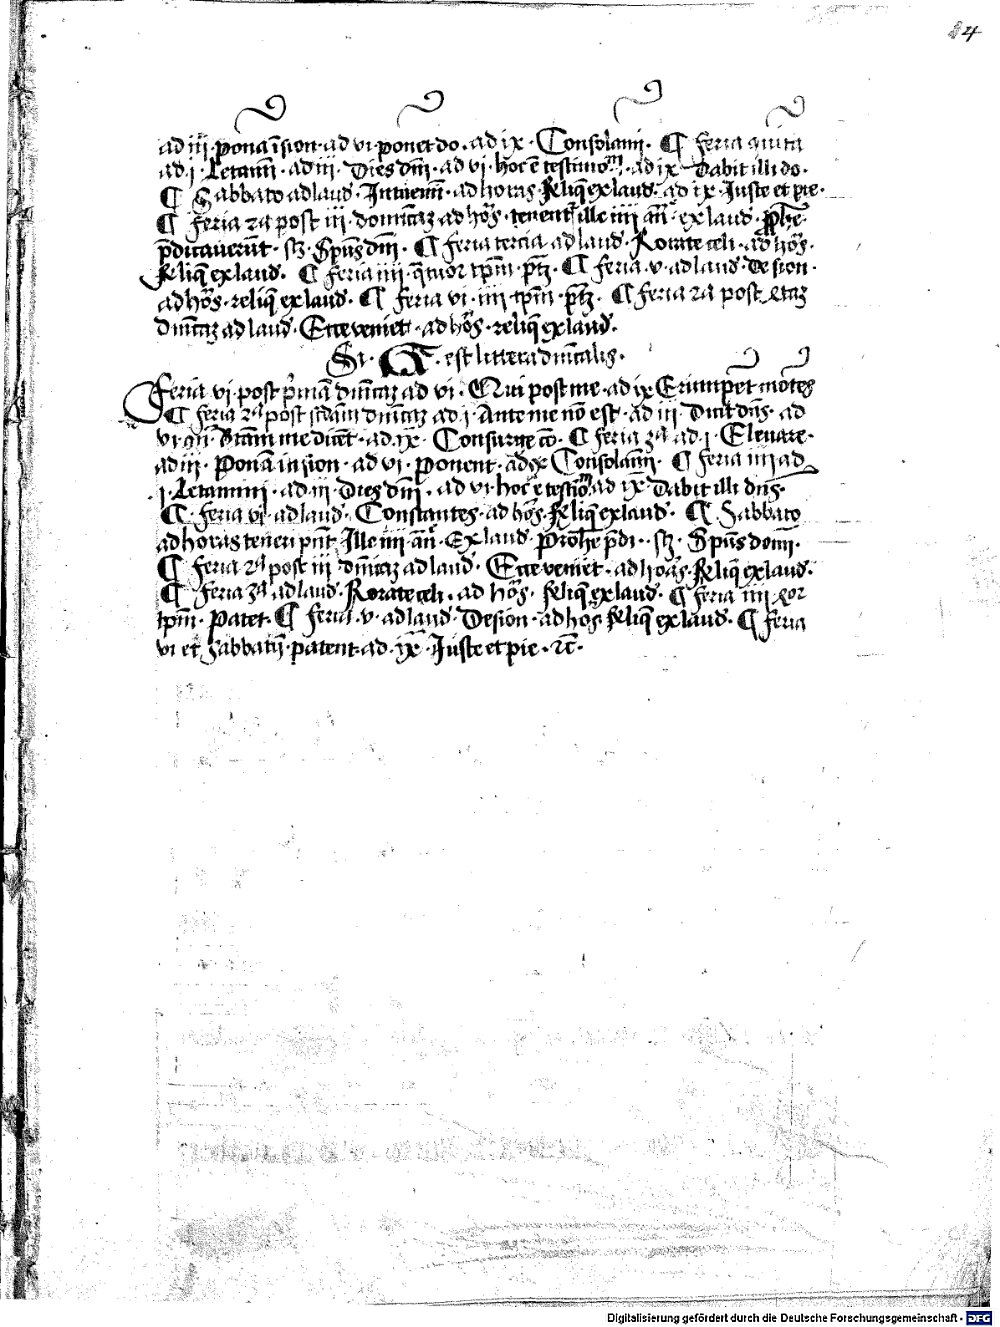 84
ad iij · Ponā ī sion · ad vi · ponet do · ad ix · Consolamī · ¶ feria quīta
ad j · Letamī · ad iij · Dies dnī · ad vi · hoc ē testimo · ad ix · Dabit illi do ·
¶ Sabbato ad laud · Intuemī · ad horas Reliq̄ ex laud · ad ix Juste et pie ·
¶ feria 2a post iij · domīcaz ad hōs · tenent ille iiij añ · ex laud · Prophe
p̄dicaverūt · sz · Spūs dnī · ¶ feria tercia ad laud · Rorate celi · ad hōs ·
Reliq̄ ex laud · ¶ feria iiij · tpm̄ · ¶ feria · v · ad laud · De sion ·
ad hōs · reliq̄ ex laud · ¶ feria vi · iiij · tpm̄ · ¶ feria 2a post
dnīcaz ad laud · Ecce veniet · ad hōs · reliq̄ ex laud ·
Si · A · est littera dnīcalis ·
Feria vi · post p̄mā dnīcaz ad vi · Qui post me · ad ix Erumpēt mōtes
¶ feria 2a post scdām dnīcaz ad j · Ante me nō est · ad iij · Dicit dn̄s · ad
vi · me dicēt · ad ix · Consurge · ¶ feria 3a ad j · Elevare ·
ad iij · Ponā in sion · ad vi · Ponent · ad ix Consolamī · ¶ feria iiij ad
j · Letamini · ad iij · Dies dnī · ad vi hoc ē testiō ad ix Dabit illi dn̄s ·
¶ · feria vi · ad laud · Constantes · ad hōs · Reliq̄ ex laud · ¶ Sabbato
ad horas teneri pn̄t Ille iiij añ · Ex laud · Prophe p̄di · sz · Spūs domī ·
¶ feria 2a post iij dnīcaz ad laud · Ecce veniet · ad hoās · Reliq̄ ex laud ·
¶ feria 3a ad laud · Rorate celi · ad hōs · Reliq̄ ex laud · ¶ feria iiij
tpm̄ · Patet · ¶ feria · v · ad laud · De sion · ad hos Reliq̄ ex laud · ¶ feria
vi et Sabbatū · patent · ad ix · Juste et pie · 2c̄ ·
Digitalisierung gefördert durch die Deutsche Forschungsgemeinschaft - DFG